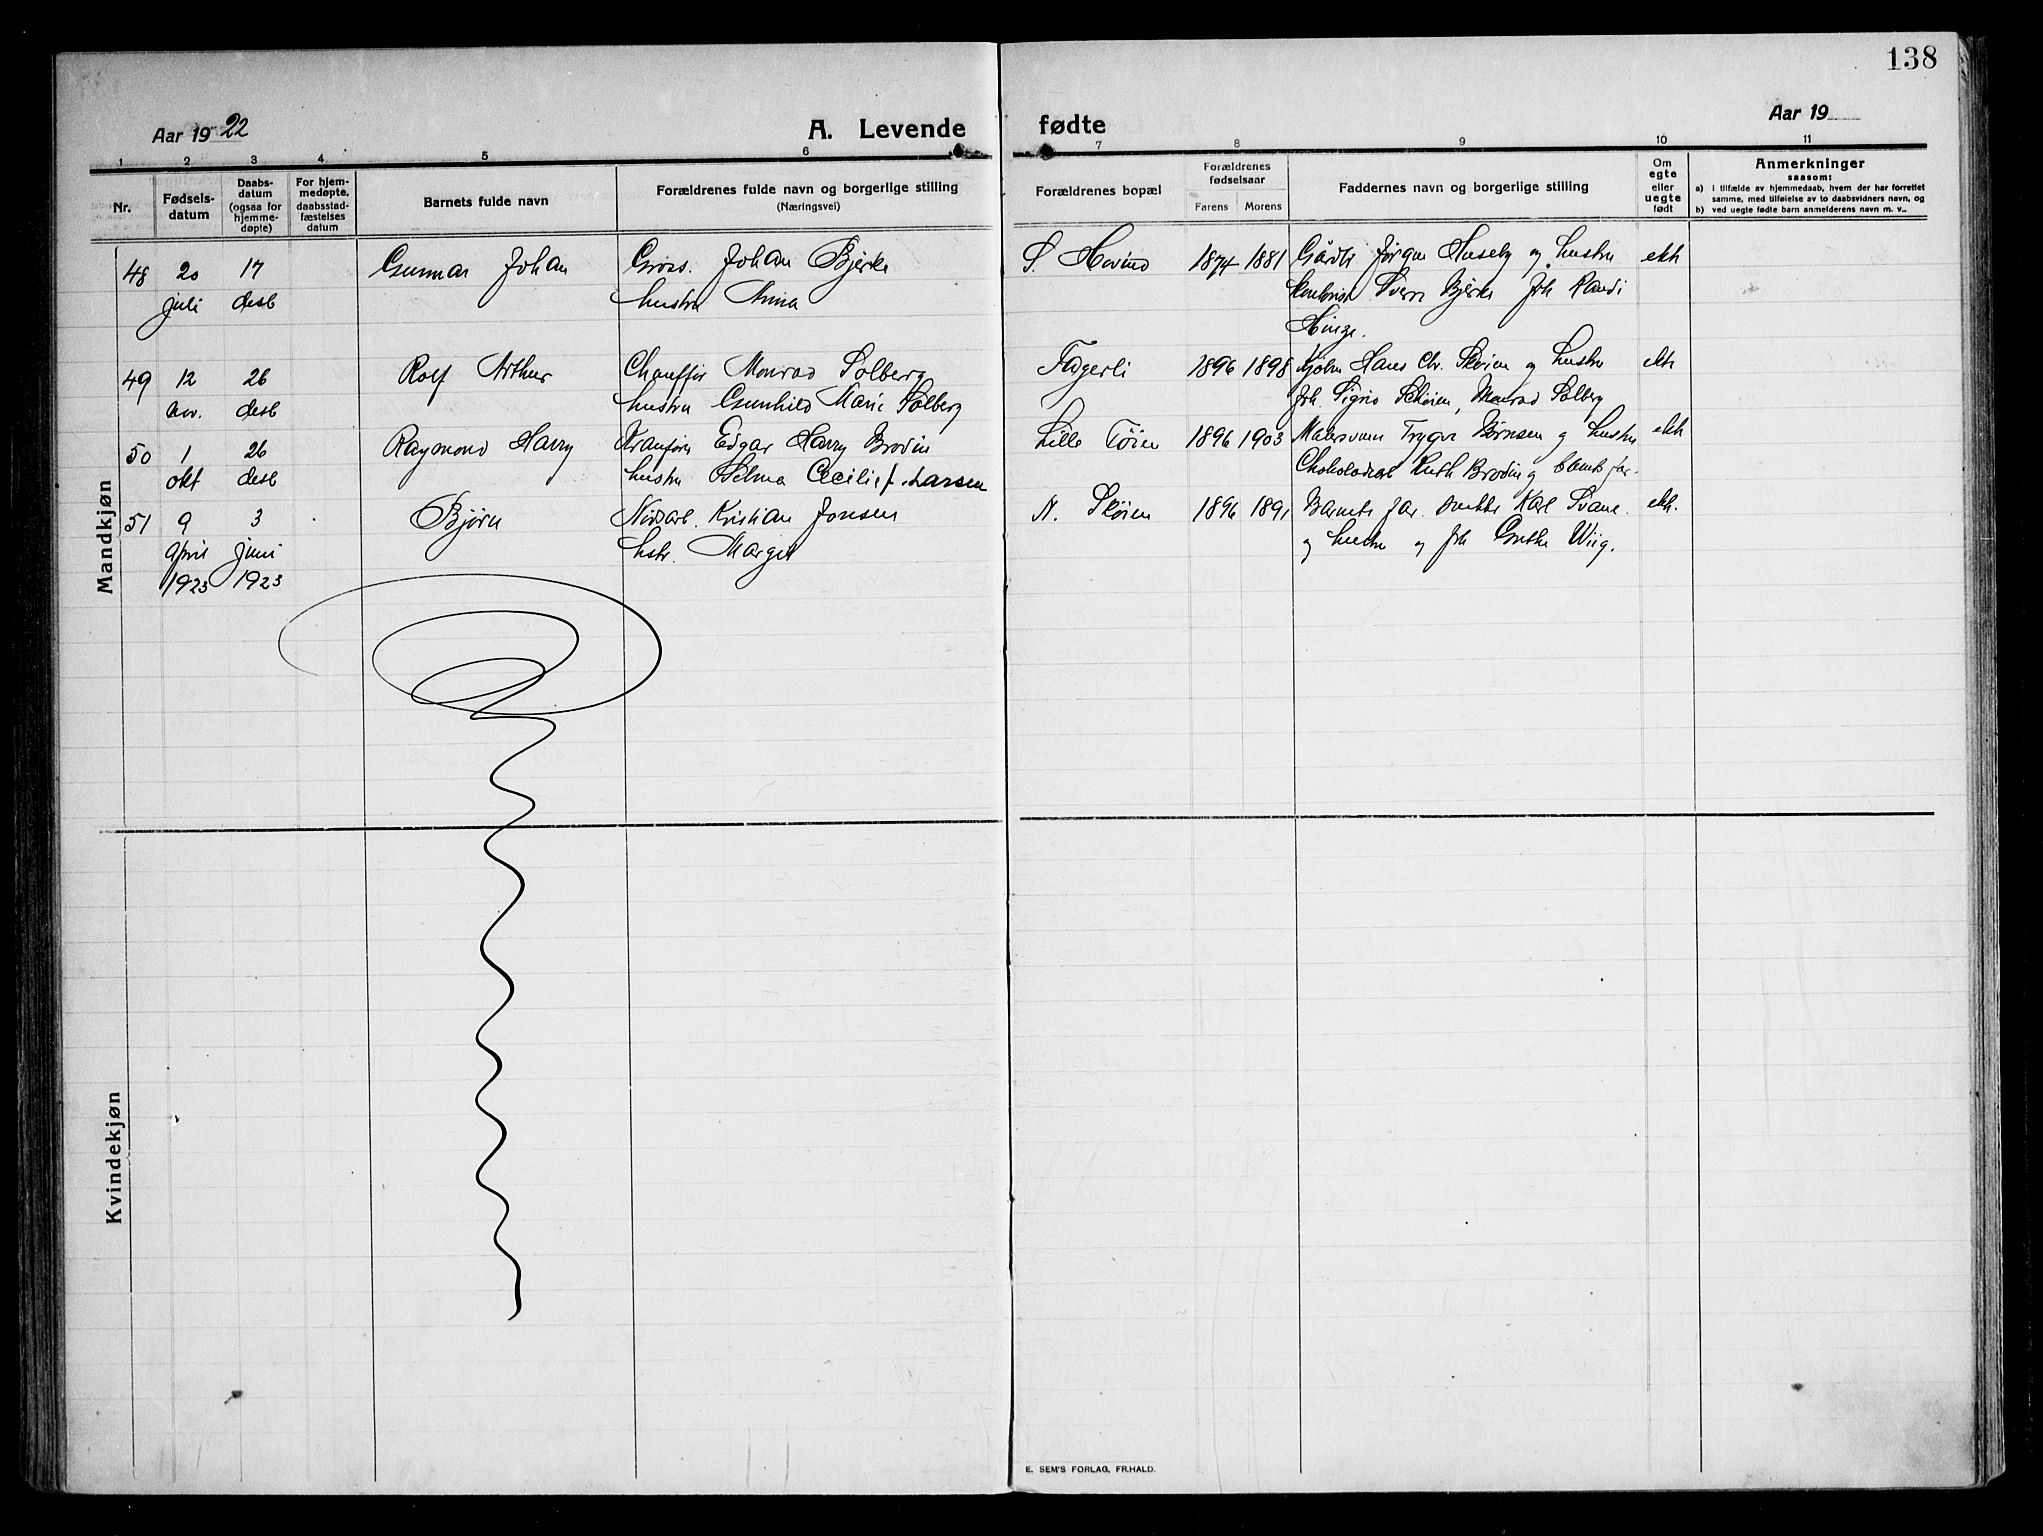 138
Aar 1922
A. Levende fødte
Aar 19
1 2 3 4 5 6 7 8 9 10 11
Nr.
Fødsels-
datum
Daabs-
datum
(ogsaa for
hjemme-
døpte)
For hjem-
medøpte,
daabsstad-
fæstelses
datum
Barnets fulde navn
Forældrenes fulde navn og borgerlige stilling
(Næringsvei)
Forældrenes bopæl
Forældrenes
fødselsaar
Farens Morens
Faddernes navn og borgerlige stilling
Om
egte
eller
uegte
født
Anmerkninger
saasom:
a) i tilfælde av hjemmedaab, hvem der har forrettet
samme, med tilføielse av to daabsvidners navn, og
b) ved uegte fødte barn anmelderens navn m. v..
Mandkjøn
48 20 17 Gunnar Johan Gross. Johan Bjerke S. Hovind 1874 1881 Gårdbr Jørgen Huseby og hustru ekte
juli desb hustru Anna Kontorist Sverre Bjerke frk Randi
Hinge.
49 12 26 Rolf Arthur Chauffør Monrad Solberg Fagerli 1896 1898 Hans Chr. Skøien og hustru ekte
nov. desb hustru Gunhild Marie Solberg frk. Sigrid Skøien, Monrad Solberg
50 1 26 Raymond Harry Kranfører Edgar Harry Brodin Lille Tøien 1896 1903 Malersvenn Trygve Børnsen og hustru ekte
okt desb hustru Selma Cecilie f. Larsen Chokoladearb Ruth Brodin og barnets far.
51 9 3 Bjørn Kristian Jonsen N. Skøien 1896 1891 Barnets far. Karl Svane. ekte.
april juni hstr. Margit og hustru og frk Grethe Wiig.
1923 1923
Kvindekjøn
E. SEM'S FORLAG, FR.HALD.